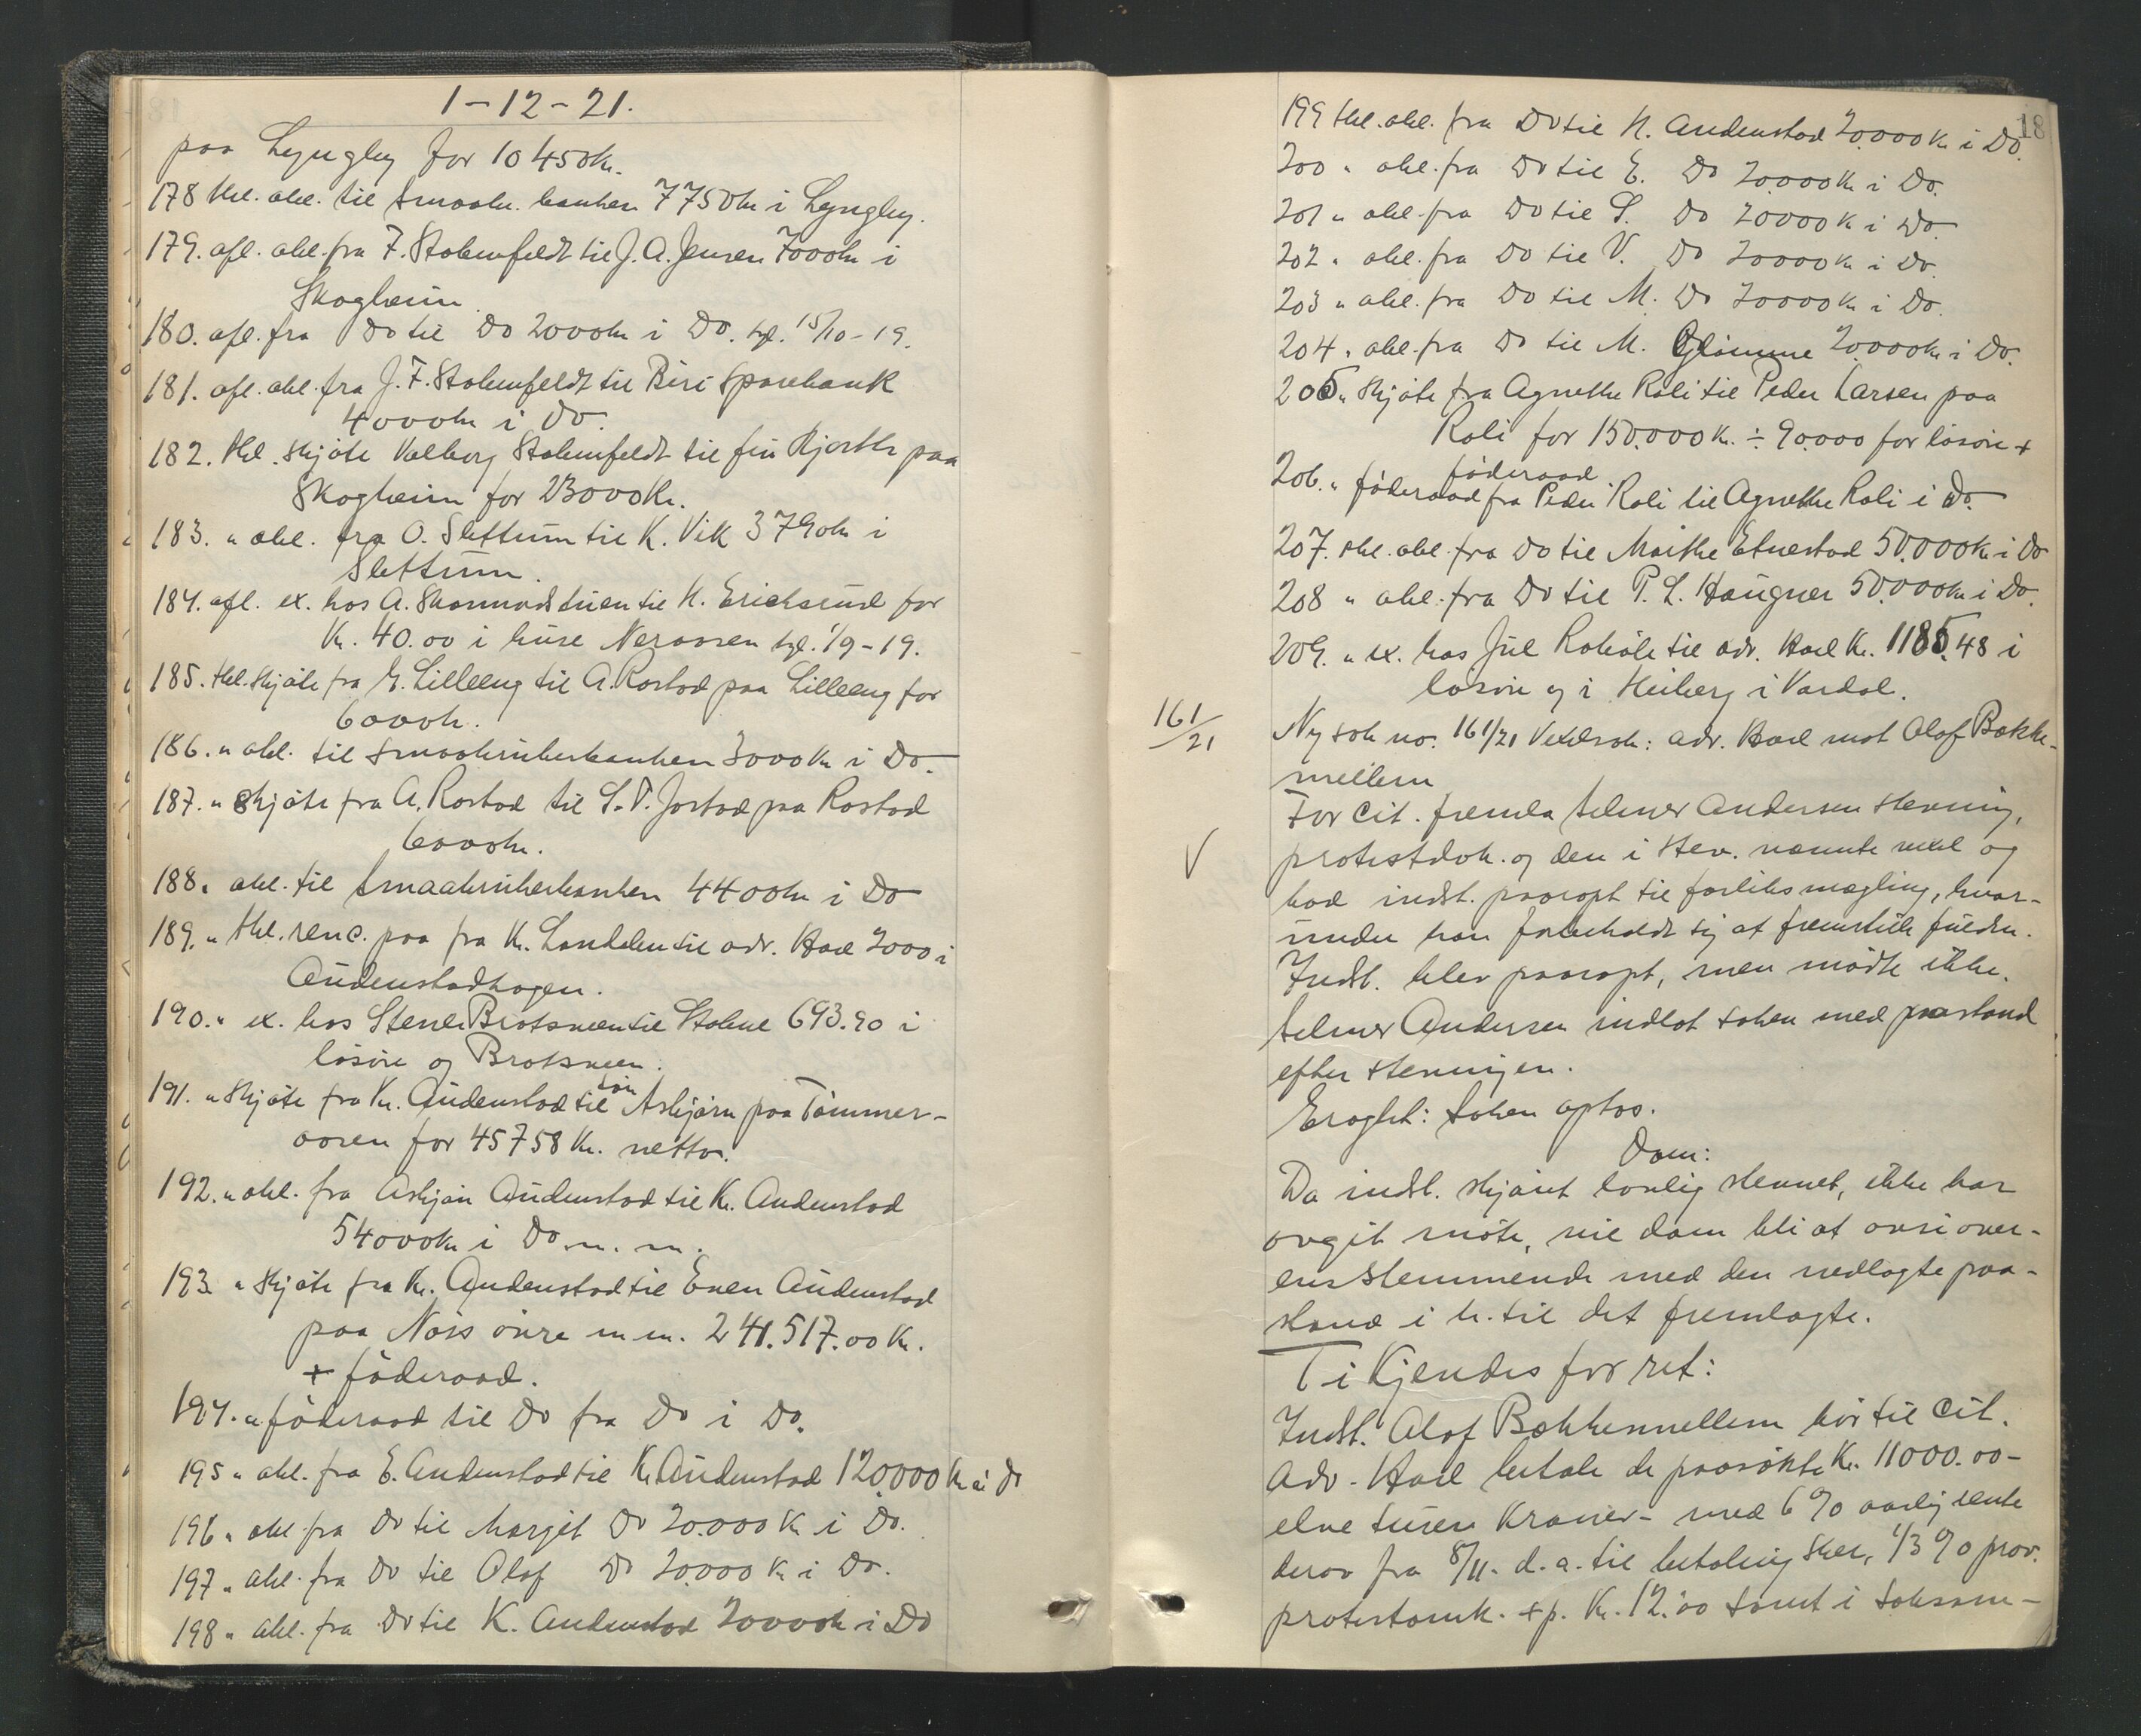 1-12-21.
paa Lyngley for 10450kr.
178 thl. obl. til Smaabr. banken 7750kr i Lyngley.
179. afl. obl. fra F. Stabenfeldt til J. A. Jensen 7000kr i
Skogheim
180. afl. fra Do til Do 2000kr i Do. tgl. 15/10-19.
181. afl. obl. fra J. F. Stabenfeldt til Biri Sparebank
4000kr i Do.
182. thl. skjöte Valborg Stabenfeldt til Hjorth paa
Skogheim for 23000Kr.
183. " obl. fra O. Slettum til K. Vik 3790kr i
Slettum.
184. afl. ex. hos A. til H. Ericksrud for
Kr. 40.00 i huse Neraasen tgl. 1/9-19.
185. thl. skjöte fra E. Lilleeng til A. Rostad paa Lilleeng for
6000kr.
186. " obl. til Smaabrukerbanken 3000Kr i Do.
187. " skjöte fra A. Rostad til S. P. Jostad paa Rostad
6000kr.
188. " obl. til Smaabrukerbanken 4400kr i Do
189. " thl. renc. paa fra Kr. Landalen til adv. Hoel 2000 i
Audenstadhagen.
190. " ex. hos Brotsveen til 693.90 i
lösöre og Brotsveen.
191. " skjöte fra Kr. Audenstad til sön Asbjörn paa Tömmer-
aasen for 45758 Kr. netto.
192. " obl. fra Asbjörn Audenstad til Kr. Audenstad
54000kr i Do m. m.
193. " skjöte fra Kr. Audenstad til Even Audenstad
paa Næss övre m m. 241.517.00 Kr.
+ föderaad.
194. " föderaad til Do fra Do i Do.
195 " obl. fra E. Audenstad til Kr. Audenstad 120.000 Kr i Do
196 " obl fra Do til Margit Do 20.000 Kr i Do.
197 " obl. fra Do til Olaf Do 20.000 Kr i Do.
198 " obl. fra Do til K. Audenstad 20000kr i Do
18
199 thl. obl. fra Do til H. Audenstad 20.000 Kr i Do.
200 " obl. fra Do til E. Do 20.000 Kr i Do.
201 " obl. fra Do til S. Do 20000 Kr i Do.
202 " obl. fra Do til V. Do 20000 Kr i Do.
203 " obl. fra Do til M. Do 20000 Kr i Do.
204 " obl. fra Do til M. Glömme 20.000kr i Do.
205 " skjöte fra Agnethe Roli til Peder Larsen paa
Roli for 150.000 Kr. ÷ 90.000 for lösöre +
föderaad
206. " föderaad fra Peder Roli til Agnethe Roli i Do.
207. thl. obl. fra Do til Marthe Etnestad 50.000 Kr i Do
208 " obl. fra Do til P. L. Haugner 50.000kr i Do.
209. " ex. hos Juel til adv. Hoel Kr. 1185.48 i
lösöre og i Heiberg i Vardal.
161/21
Ny sak no. 161/21 Vexelsak: adv. Hoel mot Olaf Bakke-
mellem
For cit. fremla Selmer Andersen stevning,
protestdok. og den i stev. nævnte vexel og
bad indst. paaropt til forliksmægling, hvor-
under han forbeholdt sig at fremstille fuldm.
V
Indst. blev paaropt, men mödte ikke.
Selmer Andersen indlot saken med paastand
efter stevningen.
Eragtet: Saken optas.
Dom:
Da indst. skjönt lovlig stevnet, ikke har
avgit möte, vil dom bli at avsi over-
ensstemmende med den nedlagte paa-
stand i h. til det fremlagte.
Ti Kjendes for ret:
Indst. Olaf Bakkemellem bör til cit.
adv. Hoel betale de paasökte Kr. 11000.00 -
elve tusen Kroner - med 6 % aarlig rente
derav fra 8/11. d. a. til betaling sker, 1/3 % prov.
protestomk. + p. Kr. 12.00 samt i saksom-